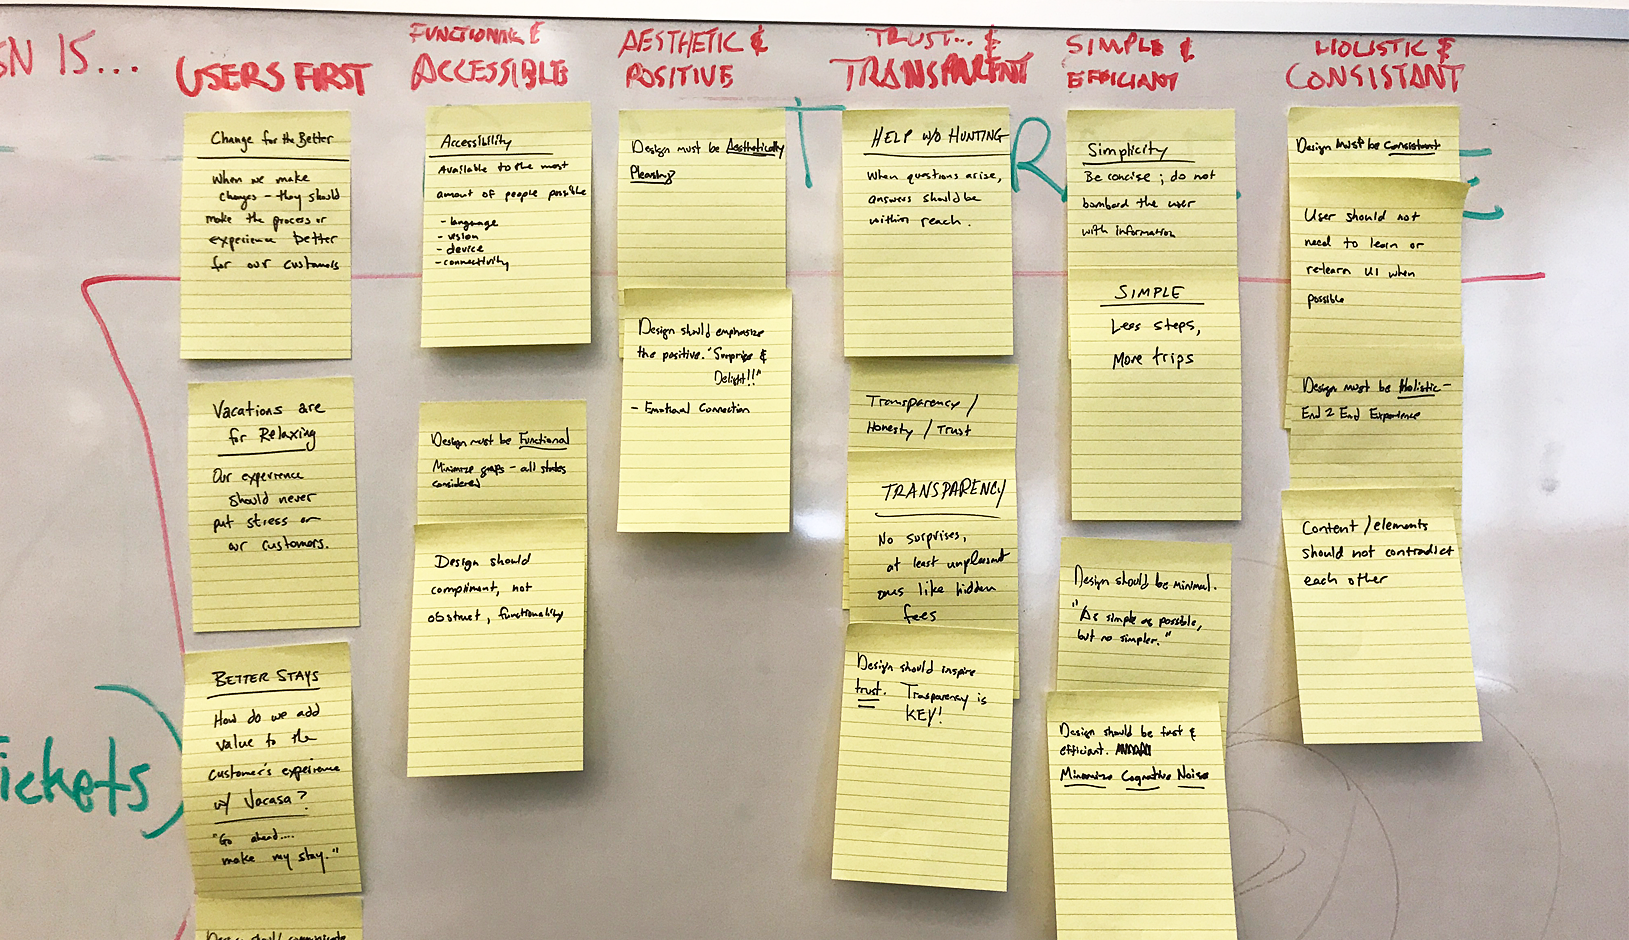 SN IS...
USERS FIRST
Change for the Better
When we make
changes - they should
make the process or
experience better
for our customers
Vacations are
for Relaxing
Our experience
should never
put stress on
our customers.
BETTER STAYS
How do we add
value to the
customer's experience
w/ Vacasa?
"Go ahead....
make my stay."
Design should communicate
FUNCTIONAL &
ACCESSIBLE
Accessibility
Available to the most
amount of people possible
- language
- vision
- device
- connectivity
Design must be Functional
Minimize gaps - all states
considered
Design should
compliment, not
obstruct, functionality
AESTHETIC &
POSITIVE
Design must be Aesthetically
Pleasing
Design should emphasize
the positive. "Surprise &
Delight!!"
- Emotional Connection
TRUST... &
TRANSPARENT
HELP W/O HUNTING
When questions arise,
answers should be
within reach.
Transparency /
Honesty / Trust
TRANSPARENCY
No surprises,
at least unpleasant
ones like hidden
fees
Design should inspire
trust. Trasparency is
KEY!
SIMPLE &
EFFICIANT
Simplicity
Be concise; do not
bombard the user
with information
SIMPLE
Less steps,
More trips
Design should be minimal.
"As simple as possible,
but no simpler."
Design should be fast &
efficient.
Minamize Cognative Noise
HOLISTIC &
CONSISTANT
Design must be consistant
User should not
need to learn or
re-learn UI when
possible
Design must be Holistic -
End 2 End Experience
Content / elements
should not contradict
each other
T R
ickets)